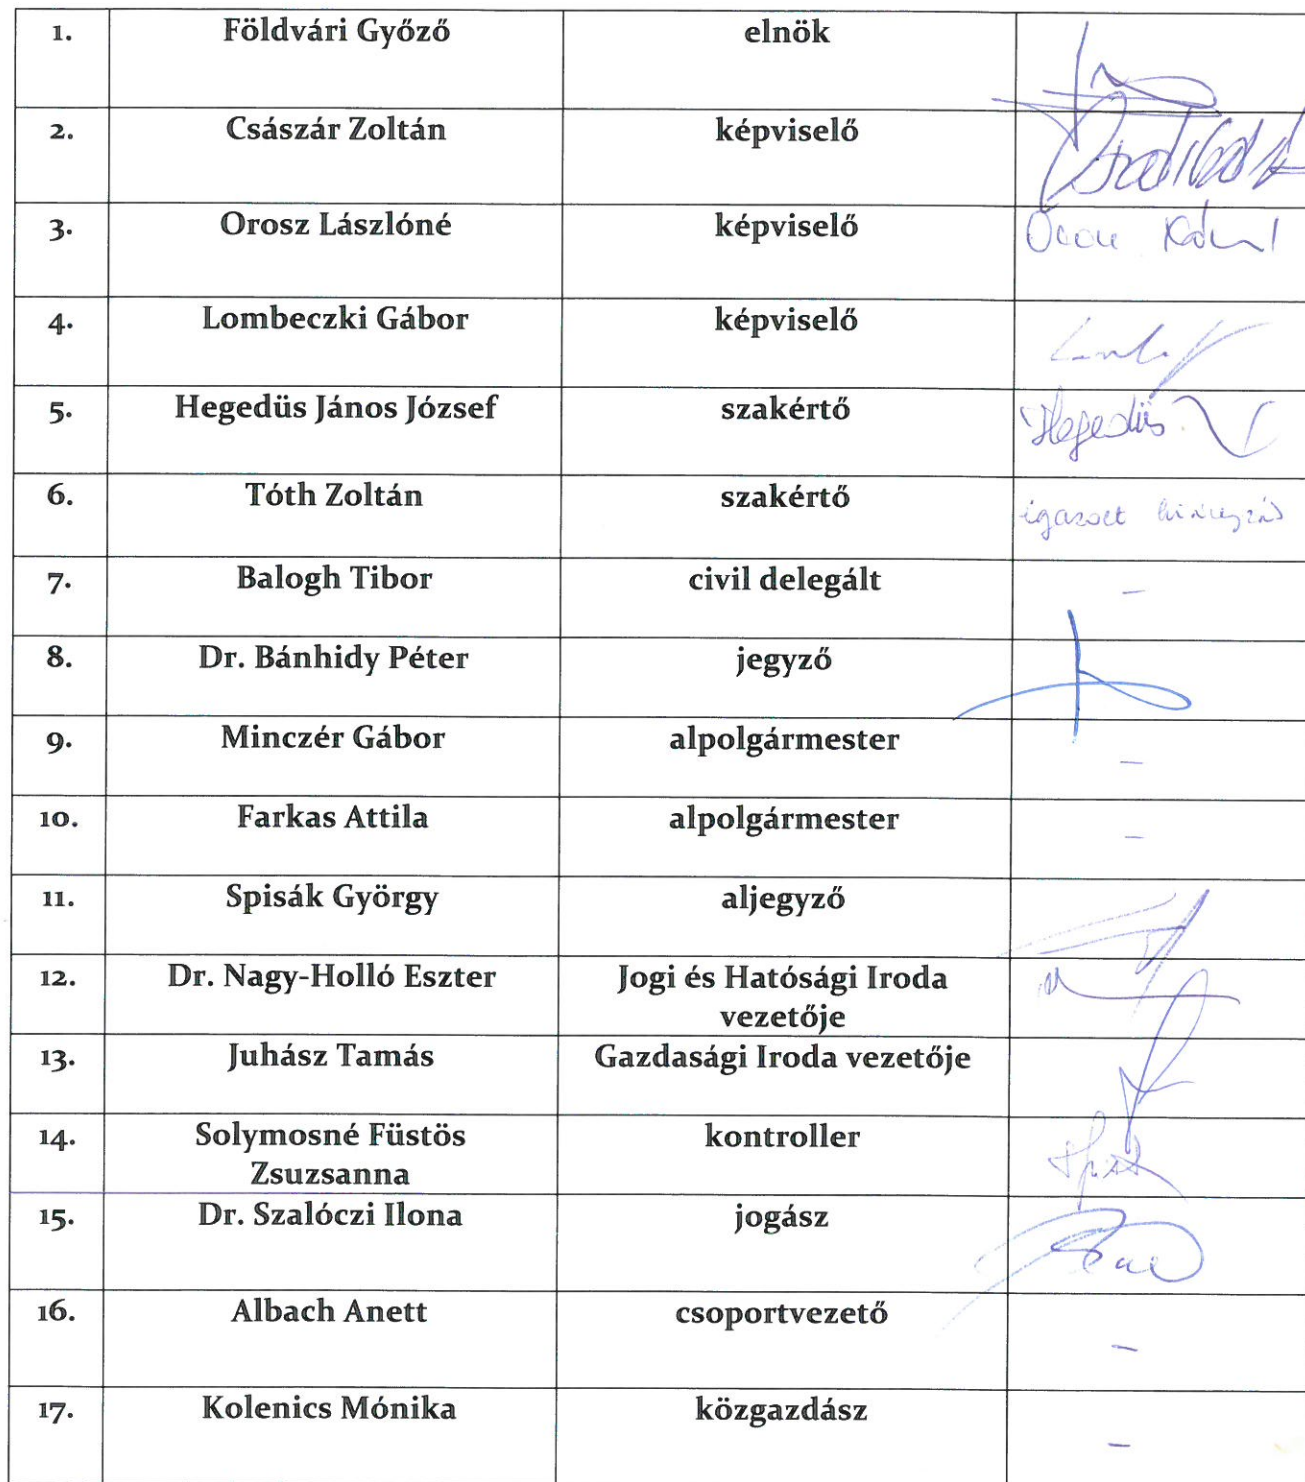 1. Földvári Győző elnök
2. Császár Zoltán képviselő
3. Orosz Lászlóné képviselő
4. Lombeczki Gábor képviselő
5. Hegedüs János József szakértő Hegedüs
6. Tóth Zoltán szakértő igazolt hiányzás
7. Balogh Tibor civil delegált –
8. Dr. Bánhidy Péter jegyző
9. Minczér Gábor alpolgármester –
10. Farkas Attila alpolgármester –
11. Spisák György aljegyző
12. Dr. Nagy-Holló Eszter Jogi és Hatósági Iroda
vezetője
13. Juhász Tamás Gazdasági Iroda vezetője
14. Solymosné Füstös kontroller
Zsuzsanna
15. Dr. Szalóczi Ilona jogász
16. Albach Anett csoportvezető –
17. Kolenics Mónika közgazdász –